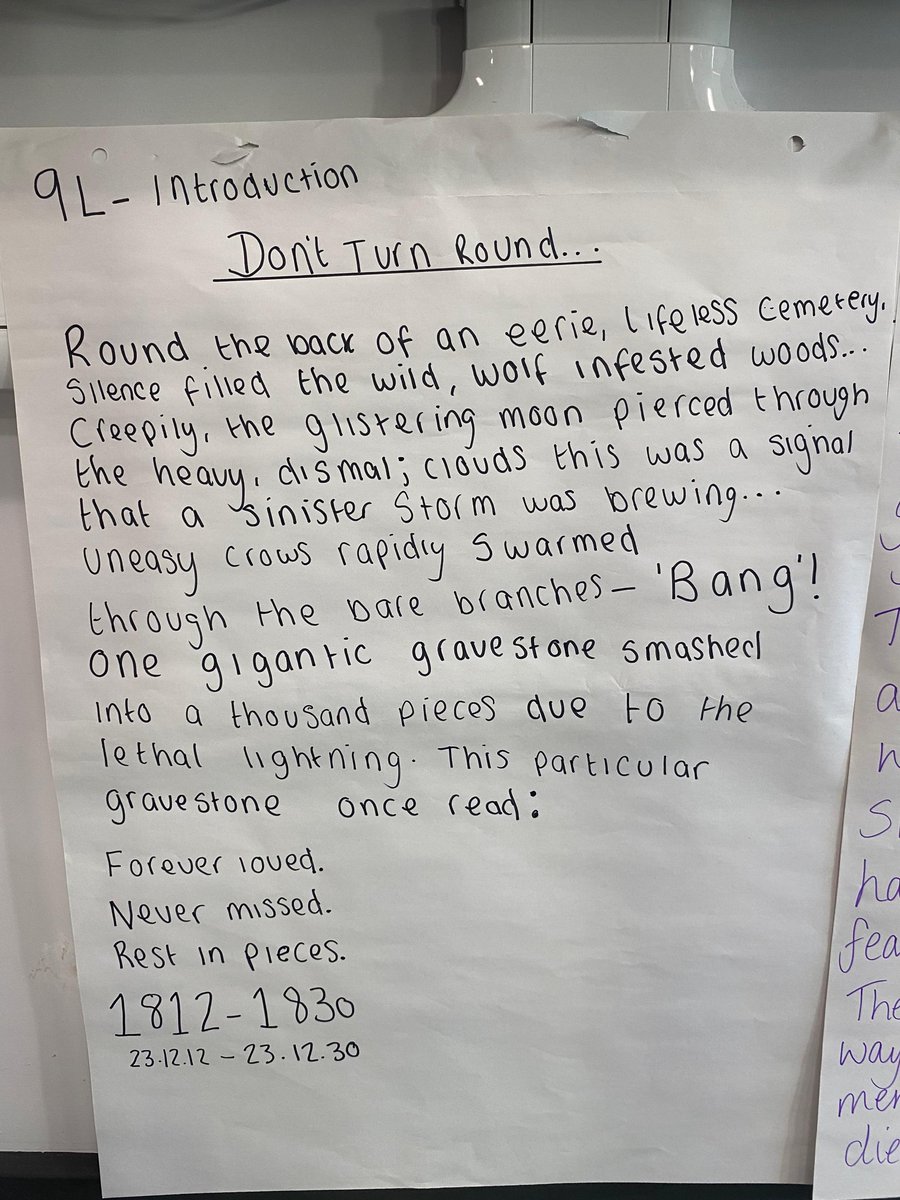 9L- Introduction
Don't Turn Round...
Round the back of an eerie, lifeless cemetery.
Silence filled the wild, wolf infested woods...
Creepily, the glistering moon pierced through
the heavy, dismal; clouds this was a signal
that a sinister storm was brewing...
uneasy crows rapidly swarmed
through the bare branches - 'Bang'!
one gigantic gravestone smashed
into a thousand pieces due to the
lethal lightning. This particular
gravestone once read:
Forever loved.
Never missed.
Rest in pieces.
1812-1830
23.12.12 - 23.12.30
The
way